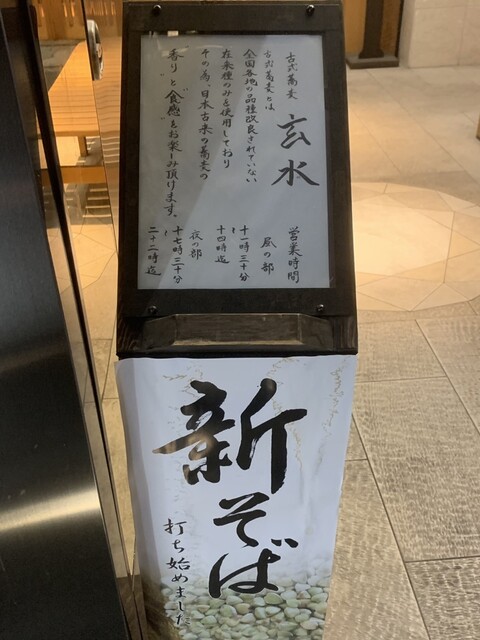 古式蕎麦
玄水
古式蕎麦とは
全国各地の品種改良されていない
在来種のみを使用しており
その為、日本古来の蕎麦の
香りと食感をお楽しみ頂けます。
営業時間
昼の部
十一時三十分
〜
十四時迄
夜の部
十七時三十分
〜
二十二時迄
新そば
打ち始めました